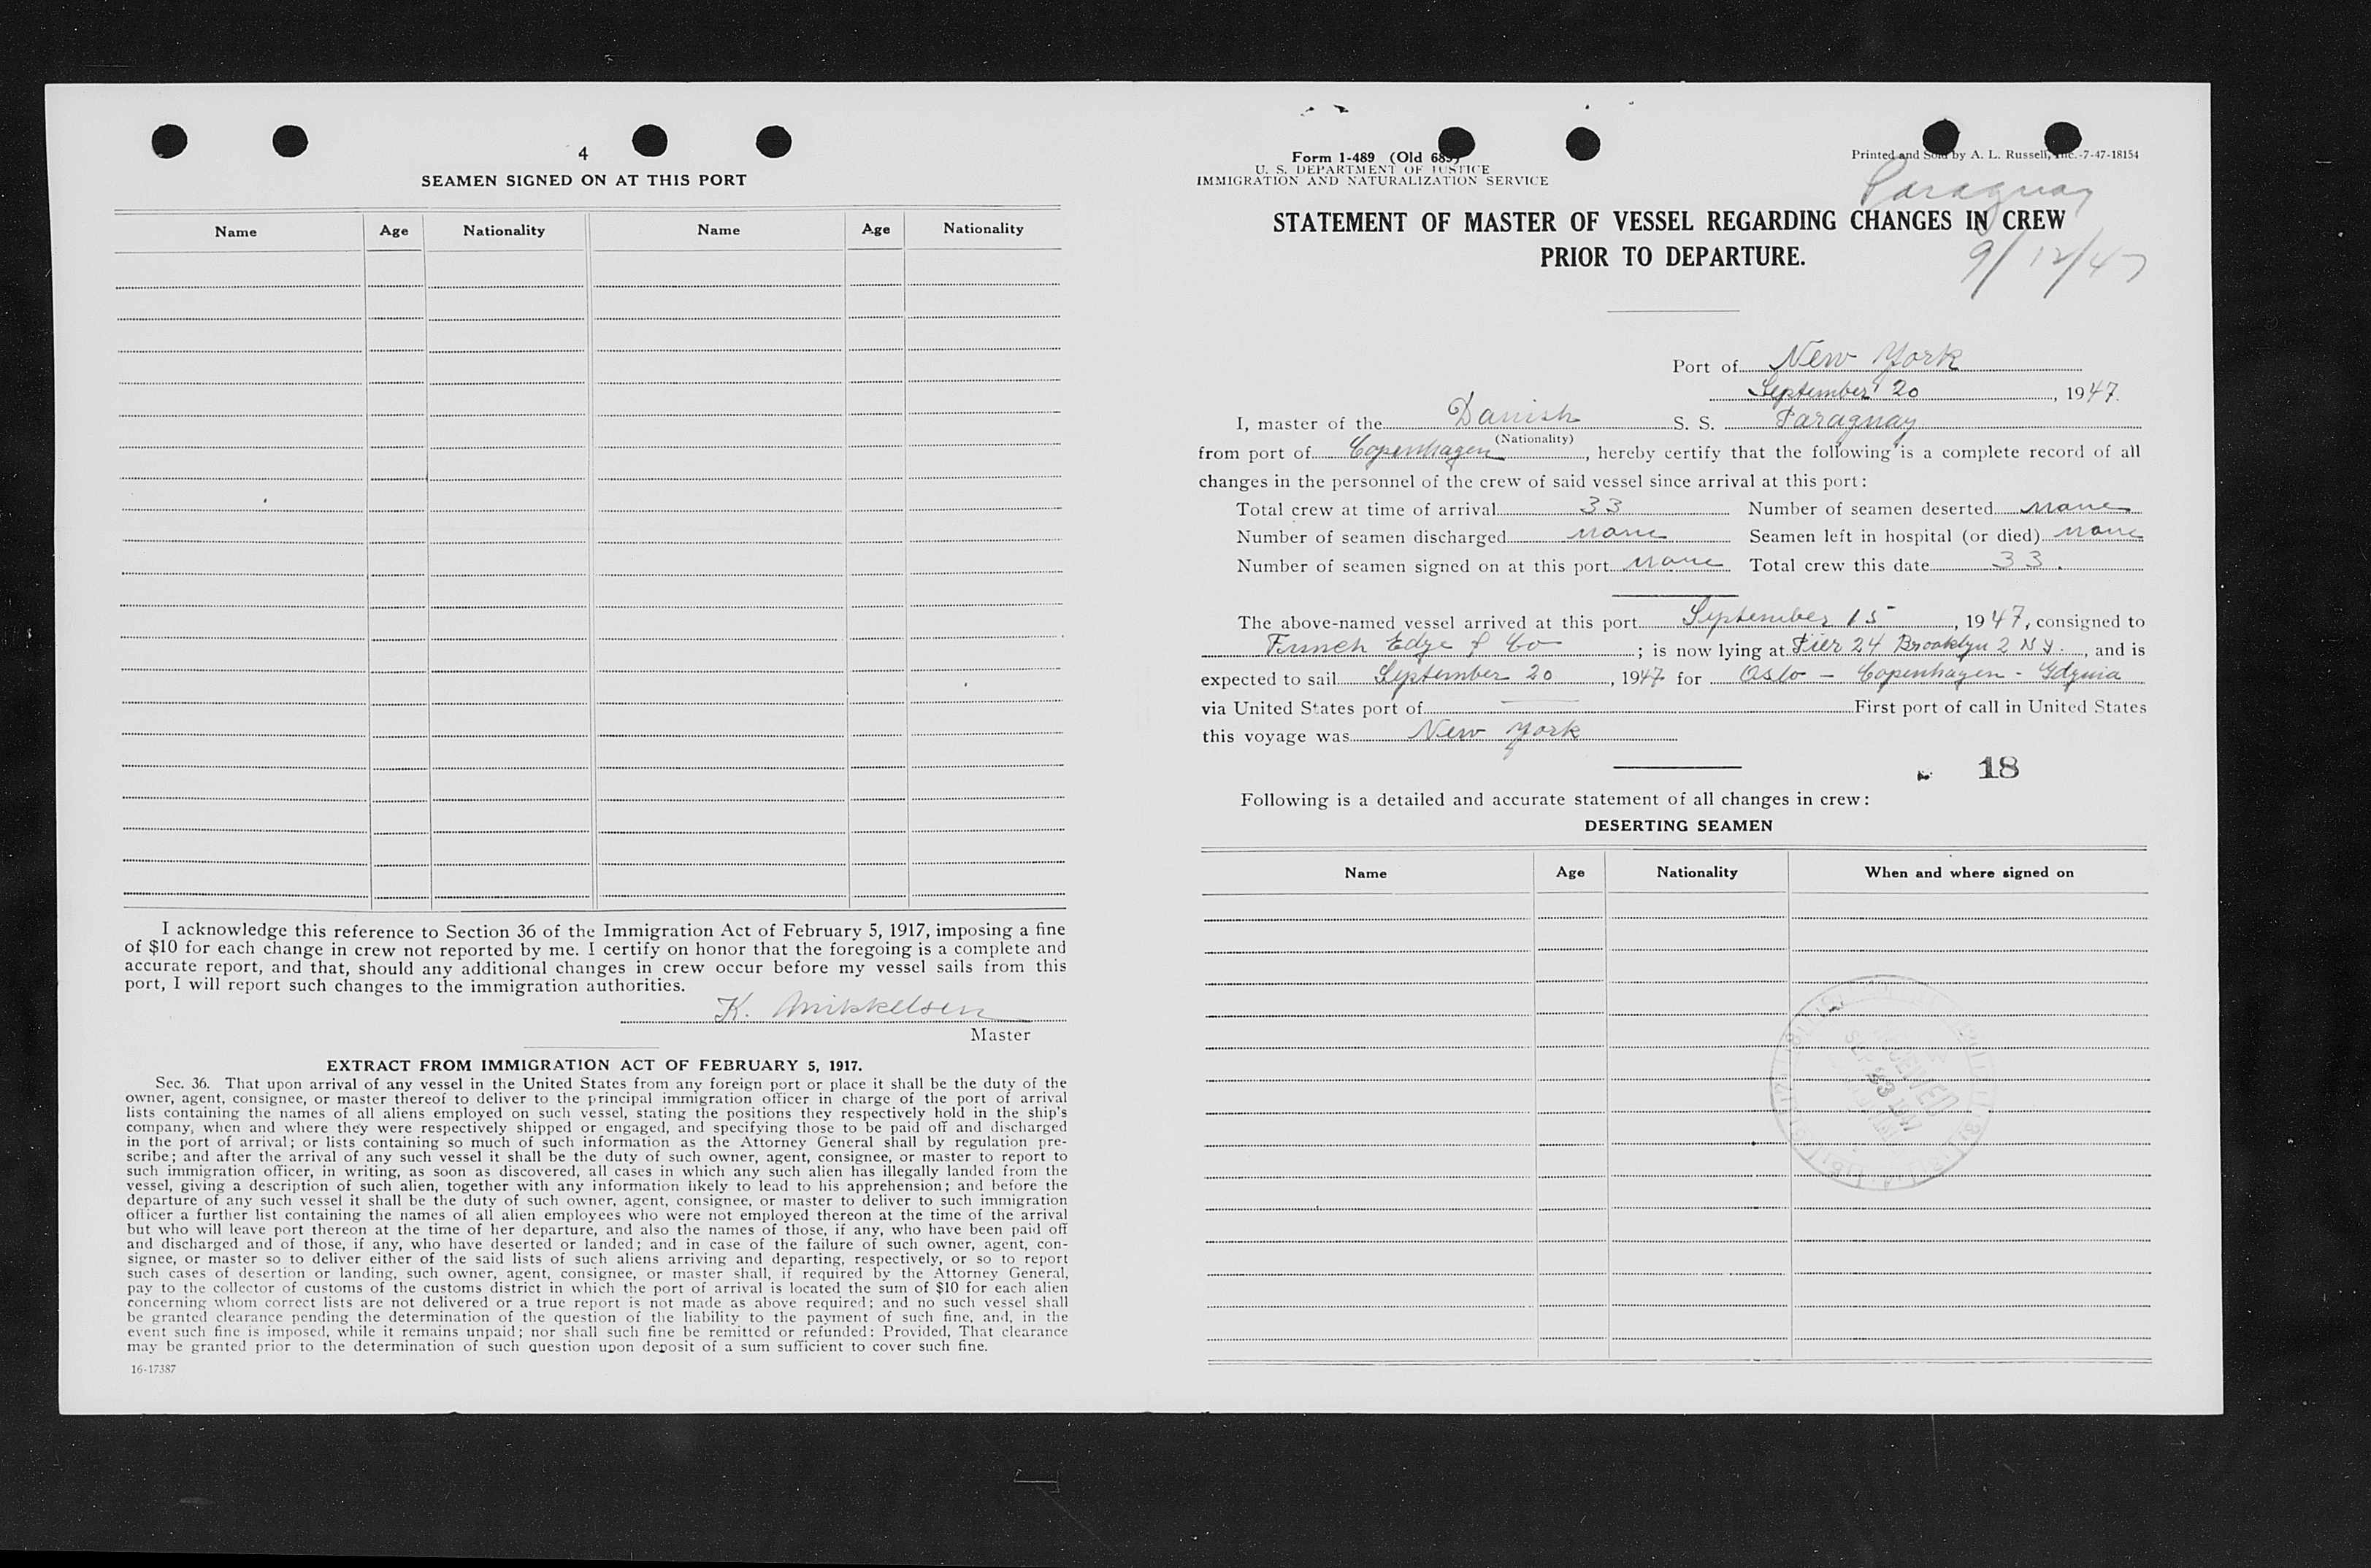 4
SEAMEN SIGNED ON AT THIS PORT
Name Age Nationality Name Age Nationality
I acknowledge this reference to Section 36 of the Immigration Act of February 5, 1917, imposing a fine
of $10 for each change in crew not reported by me. I certify on honor that the foregoing is a complete and
accurate report, and that, should any additional changes in crew occur before my vessel sails from this
port, I will report such changes to the immigration authorities.
K. Mikkelsen
Master
EXTRACT FROM IMMIGRATION ACT OF FEBRUARY 5, 1917.
Sec. 36. That upon arrival of any vessel in the United States from any foreign port or place it shall be the duty of the
owner, agent, consignee, or master thereof to deliver to the principal immigration officer in charge of the port of arrival
lists containing the names of all aliens employed on such vessel, stating the positions they respectively hold in the ship's
company, when and where they were respectively shipped or engaged, and specifying those to be paid off and discharged
in the port of arrival; or lists containing so much of such information as the Attorney General shall by regulation pre-
scribe; and after the arrival of any such vessel it shall be the duty of such owner, agent, consignee, or master to report to
such immigration officer, in writing, as soon as discovered, all cases in which any such alien has illegally landed from the
vessel, giving a description of such alien, together with any information likely to lead to his apprehension; and before the
departure of any such vessel it shall be the duty of such owner, agent, consignee, or master to deliver to such immigration
officer a further list containing the names of all alien employees who were not employed thereon at the time of the arrival
but who will leave port thereon at the time of her departure, and also the names of those, if any, who have been paid off
and discharged and of those, if any, who have deserted or landed; and in case of the failure of such owner, agent, con-
signee, or master so to deliver either of the said lists of such aliens arriving and departing, respectively, or so to report
such cases of desertion or landing, such owner, agent, consignee, or master shall, if required by the Attorney General,
pay to the collector of customs of the customs district in which the port of arrival is located the sum of $10 for each alien
concerning whom correct lists are not delivered or a true report is not made as above required; and no such vessel shall
be granted clearance pending the determination of the question of the liability to the payment of such fine, and, in the
event such fine is imposed, while it remains unpaid; nor shall such fine be remitted or refunded: Provided, That clearance
may be granted prior to the determination of such question upon deposit of a sum sufficient to cover such fine.
16-17387
Form 1-489 (Old 689)
U. S. DEPARTMENT OF JUSTICE
IMMIGRATION AND NATURALIZATION SERVICE
Printed and Sold by A. L. Russell, Inc.-7-47-18154
Paraguay
STATEMENT OF MASTER OF VESSEL REGARDING CHANGES IN CREW
PRIOR TO DEPARTURE.
9/12/47
Port of New York
September 20, 1947.
I, master of the Danish S. S. Paraguay
(Nationality)
from port of Copenhagen, hereby certify that the following is a complete record of all
changes in the personnel of the crew of said vessel since arrival at this port:
Total crew at time of arrival 33 Number of seamen deserted none
Number of seamen discharged none Seamen left in hospital (or died) none
Number of seamen signed on at this port none Total crew this date 33.
The above-named vessel arrived at this port September 15, 1947, consigned to
Funch Edye & Co; is now lying at Pier 24 Brooklyn 2 NY., and is
expected to sail September 20, 1947 for Oslo - Copenhagen - Gdynia
via United States port of — First port of call in United States
this voyage was New York
18
Following is a detailed and accurate statement of all changes in crew:
DESERTING SEAMEN
Name Age Nationality When and where signed on
RECEIVED
SEP 23 1947